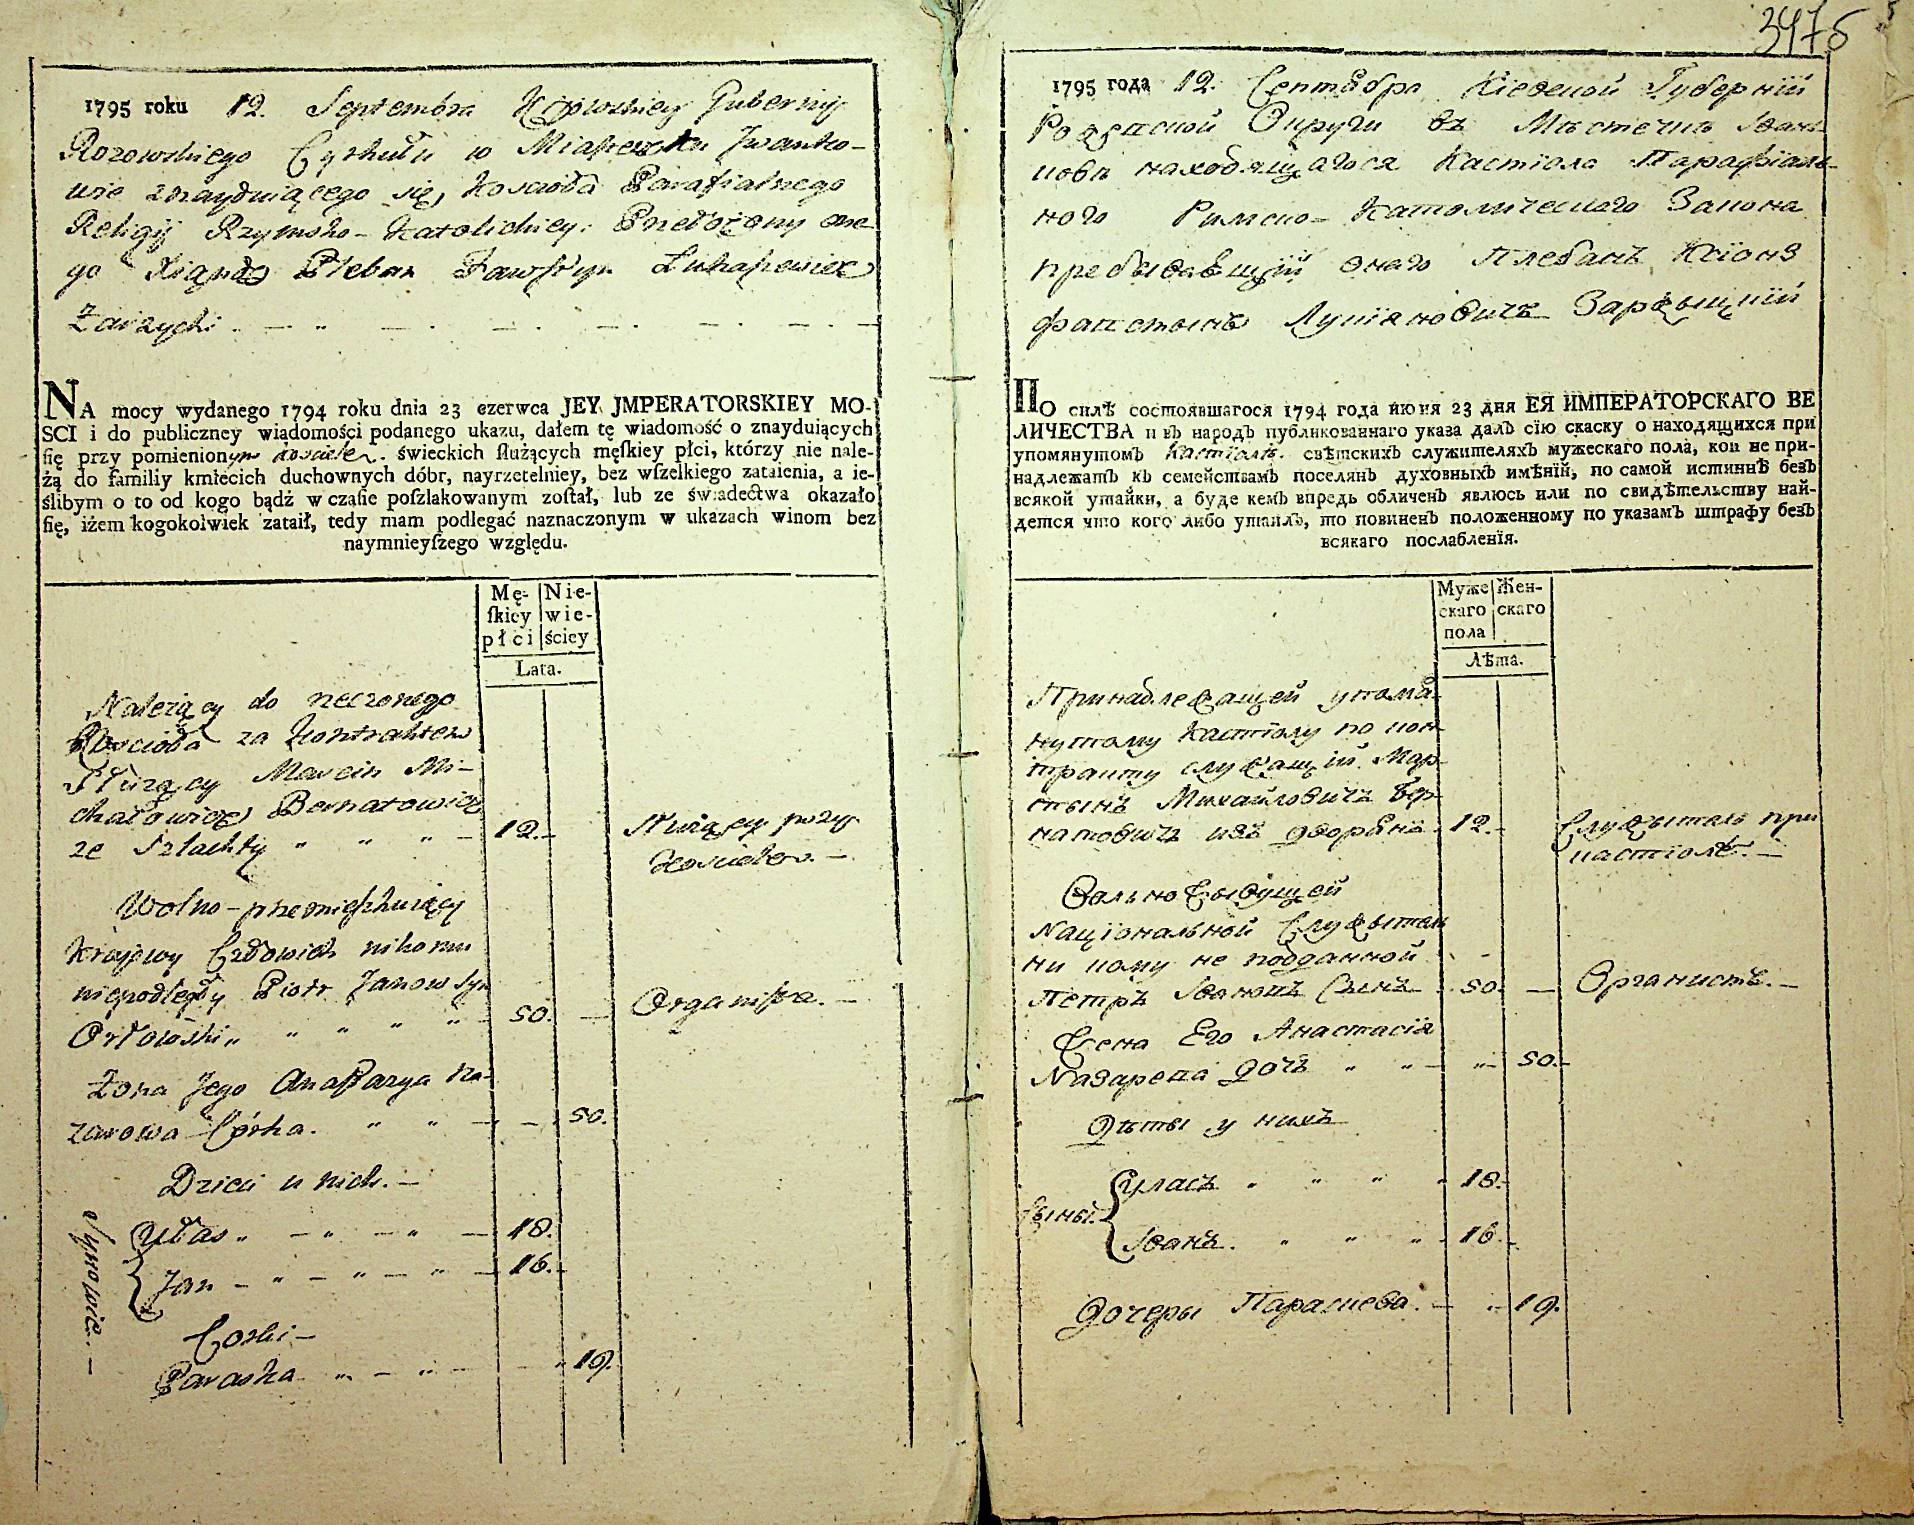 3476
1795 roku 12. Septembra Kijowskiey Gubernij
Rozowskiego Cyrkułu w Miasteczku Jwanko-
wie znayduiącego się, kościoła Parafialnego
Religij Rzymsko-Katolickiey: Przełożony one-
go Xiądz Pleban Fawstyn Łukaszewicz
Zarzycki
NA mocy wydanego 1794 roku dnia 23 czerwca JEY JMPERATORSKIEY MO-
SCI i do publiczney wiadomości podanego ukazu, dałem tę wiadomość o znayduiących
ſię przy pomienionym kościele. świeckich ſłużących męſkiey płci, którzy nie nale-
żą do familiy kmiecich duchownych dóbr, nayrzetelniey, bez wſzelkiego zataienia, a ie-
ślibym o to od kogo bądź w czaſie poſzlakowanym zoſtał, lub ze świadectwa okazało
ſię, iżem kogokolwiek zataił, tedy mam podlegać naznaczonym w ukazach winom bez
naymnieyſzego względu.
Mę-
ſkiey
płci
Nie-
wie-
ściey
Lata.
Należący do rzeczonego
Kościoła za Kontraktem
Służący Marcin Mi-
chałowicz Bernatowicz
ze Szlachty " " " — 12.— Służący przy
Kościele. —
Wolno-przemieszkuiący
Kraiowy Człowiek nikomu
niepodległy Piotr Janow Syn
Orłowski " " " " — 50. — Organista. —
Żona Jego Anastazya Na-
zarowa Córka. " " — — 50.
Dzieci u nich. —
Synowie. —
Ułas " — " — " — 18.
Jan — " — " — " — 16.—
Corki —
Paraska " — " — — " 19.
1795 года 12. Сентября Кіевской Губерніи
Округи въ Мѣстечкѣ Іван-
ковѣ находящагося Кастіола Парафіаль-
ного Римско-Католическаго Закона
пребывающій онаго Плебанъ Ксіонз
Фапстынъ Лукіяновичъ Заржыцкій
ПО силѣ состоявшагося 1794 года июня 23 дня ЕЯ ИМПЕРАТОРСКАГО ВЕ
ЛИЧЕСТВА и въ народъ публикованнаго указа далъ сїю скаску о находящихся при
упомянутомъ Кастіолѣ. свѣтскихъ служителяхъ мужескаго пола, кои не при-
надлежатъ къ семействамъ поселянъ духовныхъ имѣнїй, по самой истиннѣ безъ
всякой утайки, а буде кемъ впредь обличенъ явлюсь или по свидѣтельству най-
дется что кого либо утаилъ, то повиненъ положенному по указамъ штрафу безъ
всякаго послабленїя.
Муже
скаго
пола
Жен-
скаго
Лѣта.
Принадлежащей упомя-
нутому Кастіолу по кон-
тракту служащій Мар-
тынъ Михайловичъ Бер-
натовичъ изъ дворянъ. 12.— Служытель при
кастіолѣ. —
Вольноживущей
Національной Служытель
ни кому не подданной
Петръ Івановъ Сынъ — 50. — Органистъ. —
Жена Его Анастасія
Назарева дочь " " — " — 50.—
Дѣты у нихъ
Сыны.
Уласъ " " " " 18.—
Іванъ. " " " 16.—
Дочеры Параскева. — " — 19.